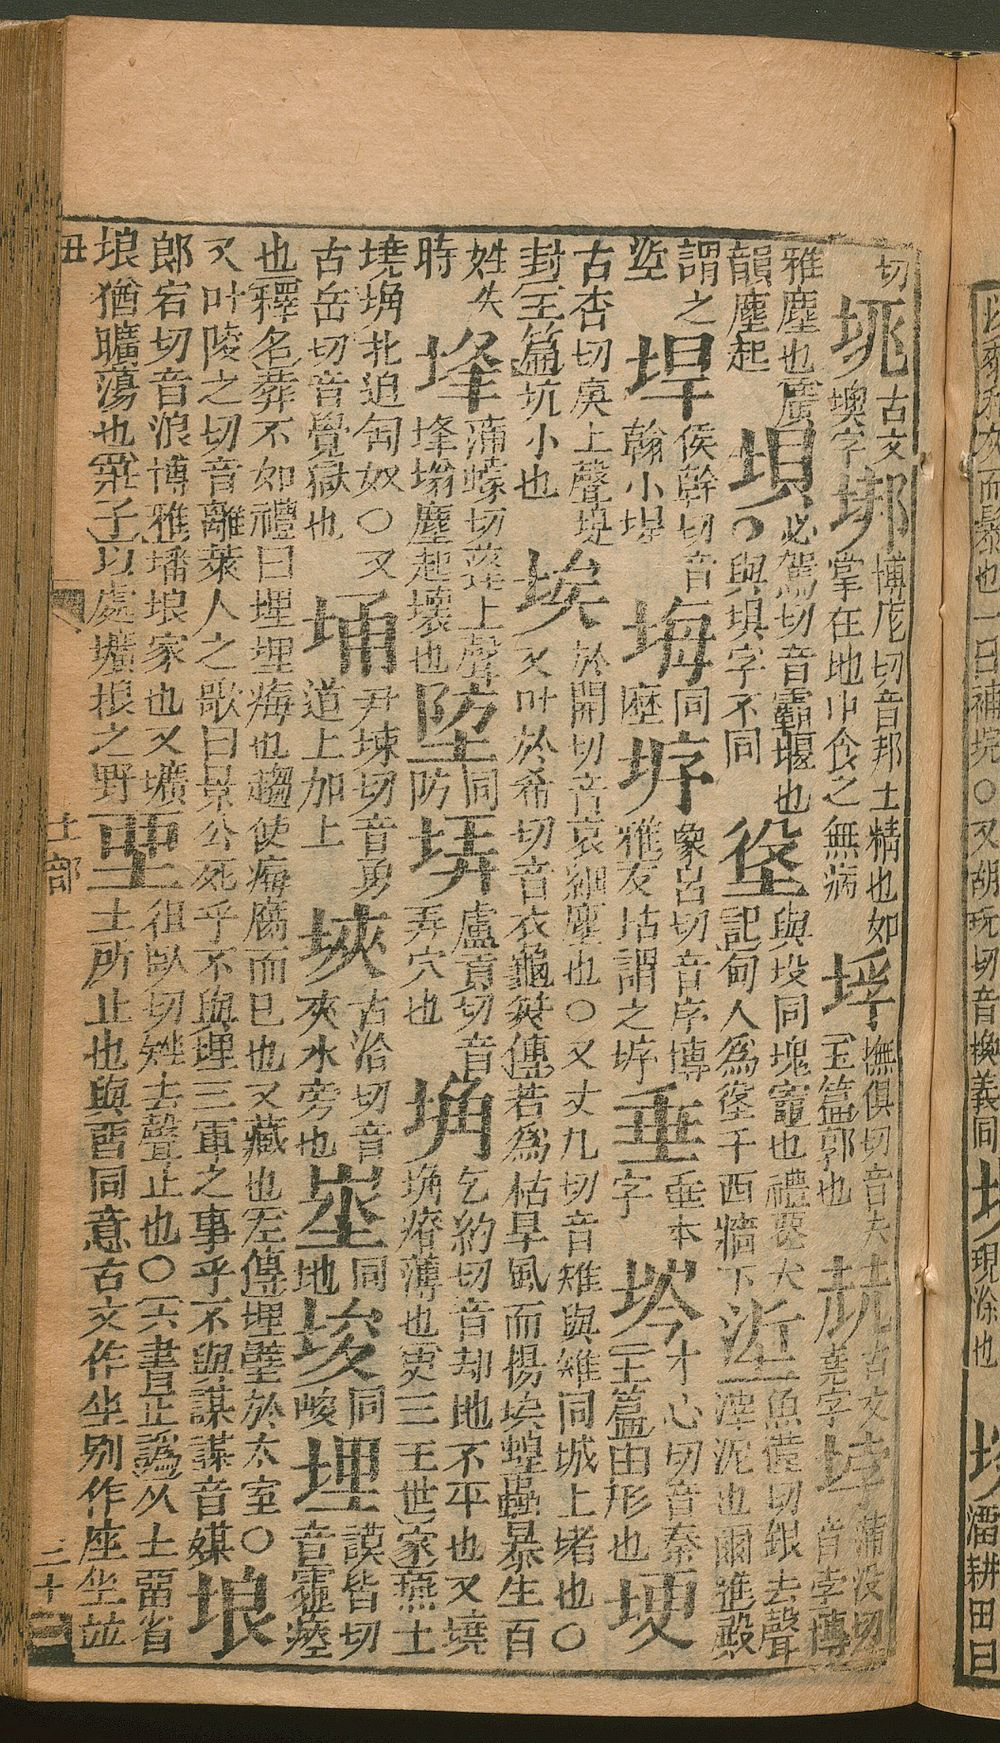 以漆和灰而髹也一曰補垸○又胡玩切音換義同
溜耕田曰
切 垗 古文墺字 垹 博尨切音邦土精也如掌在地中食之無病 垺 撫俱切音夫〔玉篇〕郭也 古文堯字 蒲没切音孛博
雅塵也廣韻塵起 垻 必駕切音霸堰也○與埧字不同 垼 與役同塊竈也禮喪大記甸人爲垼于西牆下 垽 魚僅切銀去聲滓泥也爾進殿
謂之垽 垾 侯幹切音翰小堤 同塺 垿 象呂切音序博雅反坫謂之垿 垂 垂本字 埁 才心切音岑〔玉篇〕由形也 埂
古杏切庚上聲堤封〔玉篇〕坑小也 埃 於開切音哀細塵也○又丈九切音雉與雉同城上堵也○又叶於希切音衣龜筴傳若爲枯旱風而揚埃蝗蟲暴生百
姓失時 埄 蒲蠓切蓬上聲埄塕塵起壞也 埅 同防 盧貢切音弄穴也 埆 乞約切音却地不平也又墝埆瘠薄也〔吏三王世家〕燕土
墝埆北迫匈奴○又古岳切音覺獄也 埇 尹竦切音勇道上加土 埉 古洽切音夾水旁也 埊 同地 埈 同峻 埋 謨皆切音霾瘞
也〔釋名〕葬不如禮曰埋埋痗也趨使痗腐而已也又藏也〔左傳〕埋璧於太室○又叶陵之切音離萊人之歌曰景公死乎不與埋三軍之事乎不與謀謀音媒 埌
郎宕切音浪博雅墦埌冢也又壙埌猶曠蕩也〔莊子〕以處壙埌之野 徂臥切矬去聲止也○〔六書正譌〕从土畱省土所止也與畱同意古文作坐别作座坐竝
丑 土部 三十二